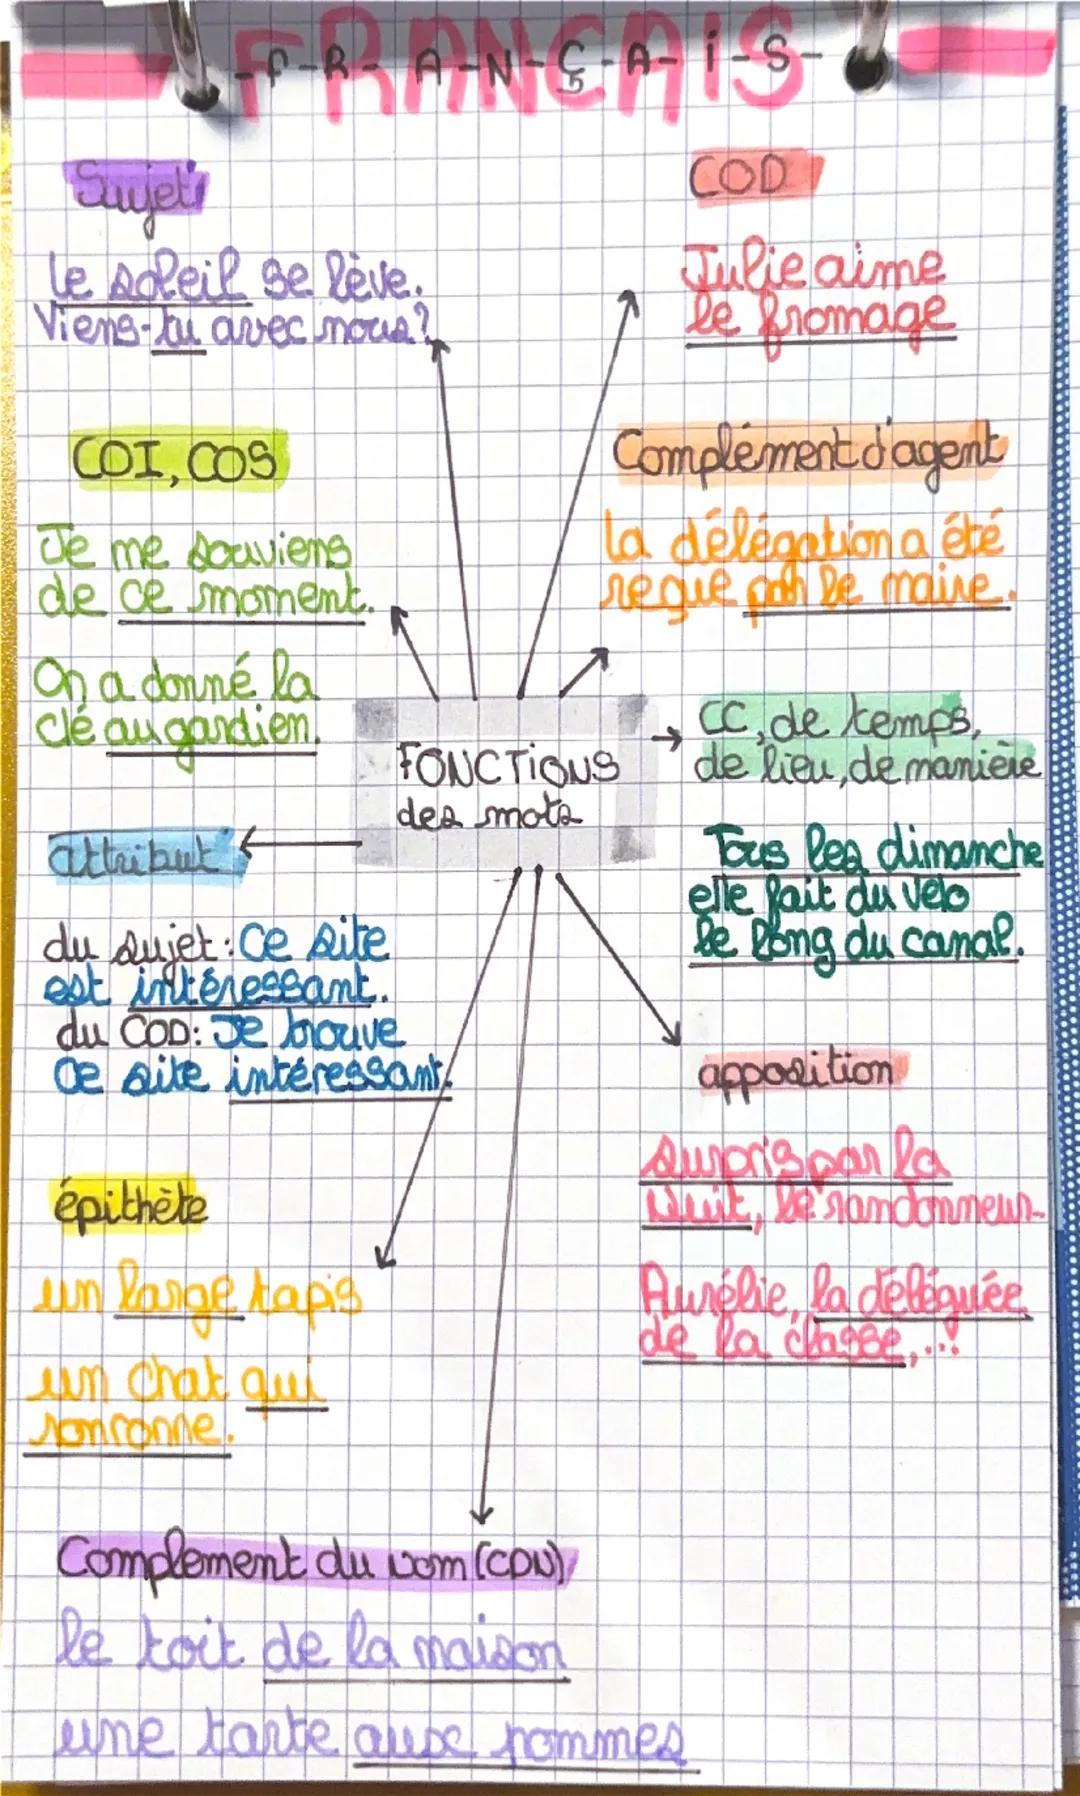 -F-R-A-N-Ç-A-i-S-
FRANÇAiS
Sujet
le soleil se lève.
Viens-tu avec nous?
COD
Julie aime
le fromage
COI, COS
Je me souviens
de ce moment.
On a donné la
clé au gardien.
Complément d'agent
la délégation a été
reçue par le maire.
FONCTiONS
des mots
CC, de temps,
de lieu, de manière
Tous les dimanche
elle fait du vélo
le long du canal.
attribut
du sujet: Ce site
est intéressant.
du COD: Je trouve
ce site intéressant.
apposition
surpris par la
Nuit, le randonneur
Aurélie, la déléguée
de la classe,...
épithète
un large tapis
un chat qui
ronronne.
Complement du nom (CDN)
le toit de la maison
une tarte aux pommes